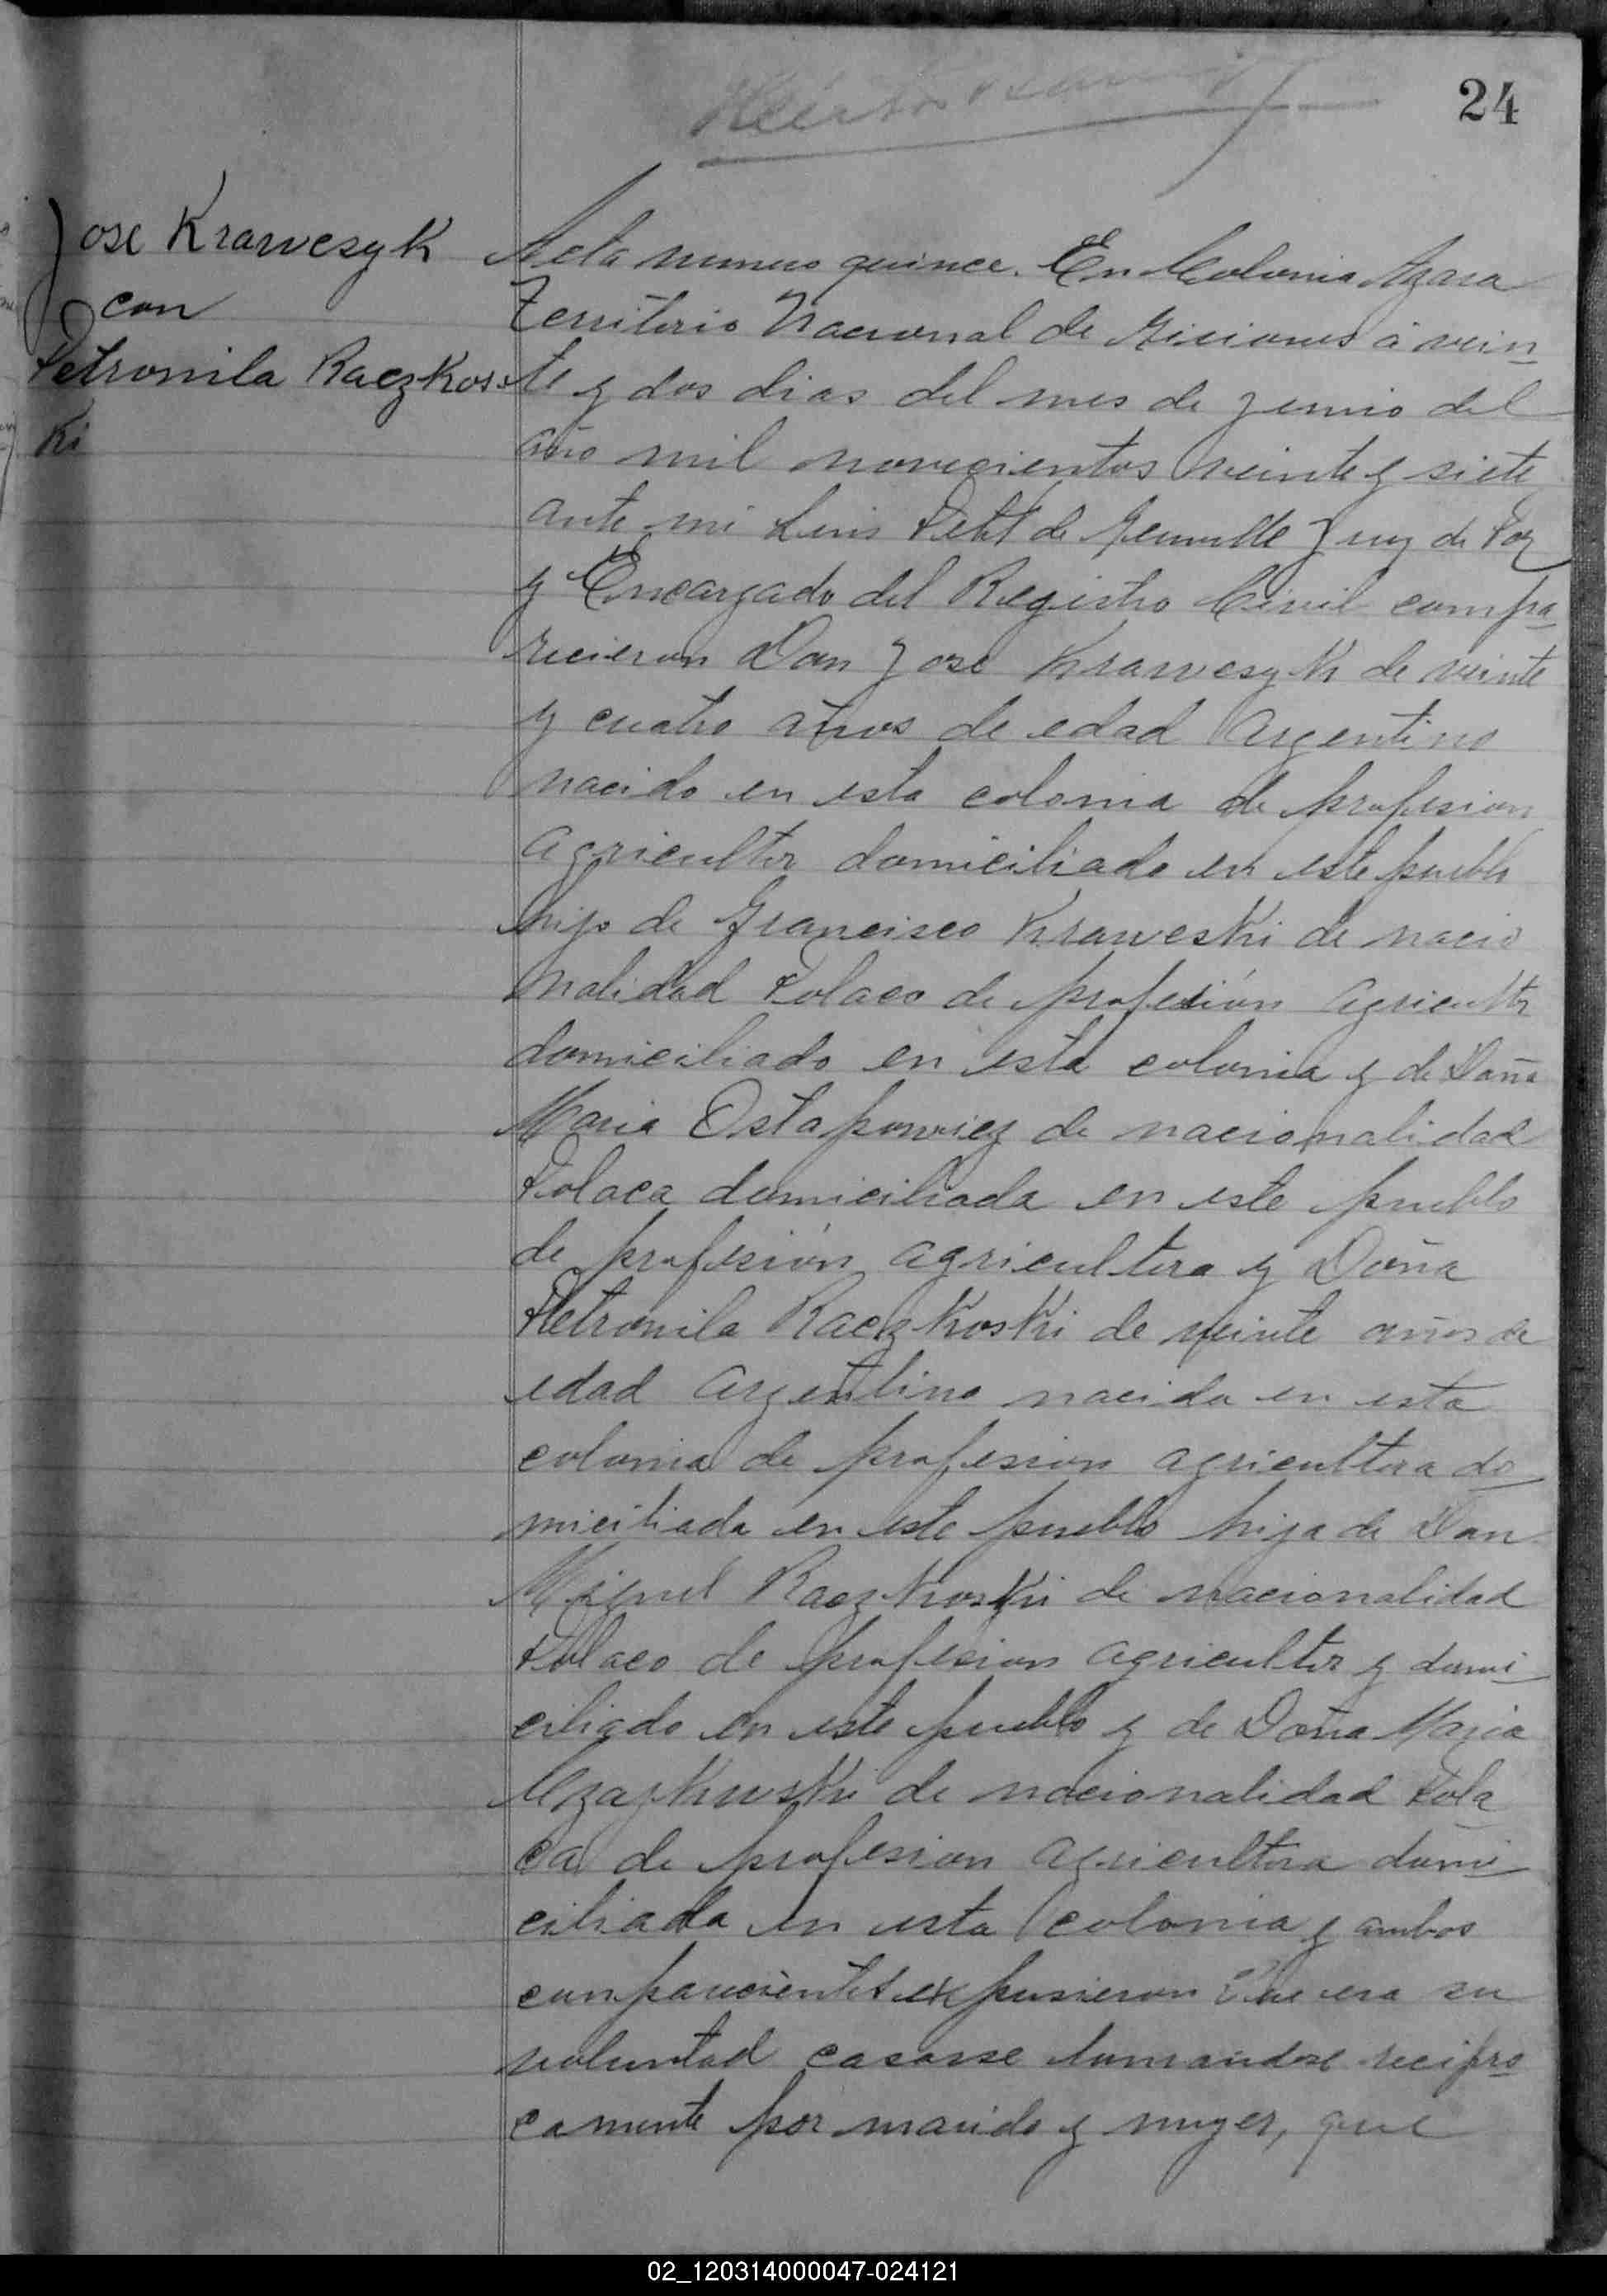 24
Jose Krawcsyk
con
Petronila Raczkos-
ki
Acta numero quince. En Colonia Azara
Territorio Nacional de Misiones á vein
te y dos dias del mes de junio del
año mil novecientos veinte y siete
ante mi Luis Petit de Juez de Paz
y Encargado del Registro Civil compa
recieron Don Jose Krawcsyk de veinte
y cuatro años de edad Argentino
nacido en esta colonia de profesion
agricultor domiciliado en este pueblo
hijo de Francisco Kraweski de nacio
nalidad Polaco de profesión agricultor
domiciliado en esta colonia y de Doña
Maria Ostapowicz de nacionalidad
Polaca domiciliada en este pueblo
de profesión agricultora y Doña
Petronila Raczkoski de veinte años de
edad argentina nacida en esta
colonia de profesion agricultora do
miciliada en este pueblo hija de Don
Miguel Raczkoski de nacionalidad
Polaco de profesion agricultor y domi
ciliado en este pueblo y de Doña Maria
de nacionalidad Pola
ca de profesion agricultora domi
ciliada en esta colonia y ambos
comparecientes expusieron Que era su
voluntad casarse tomandose recipro
camente por marido y muger, que
02_120314000047-024121